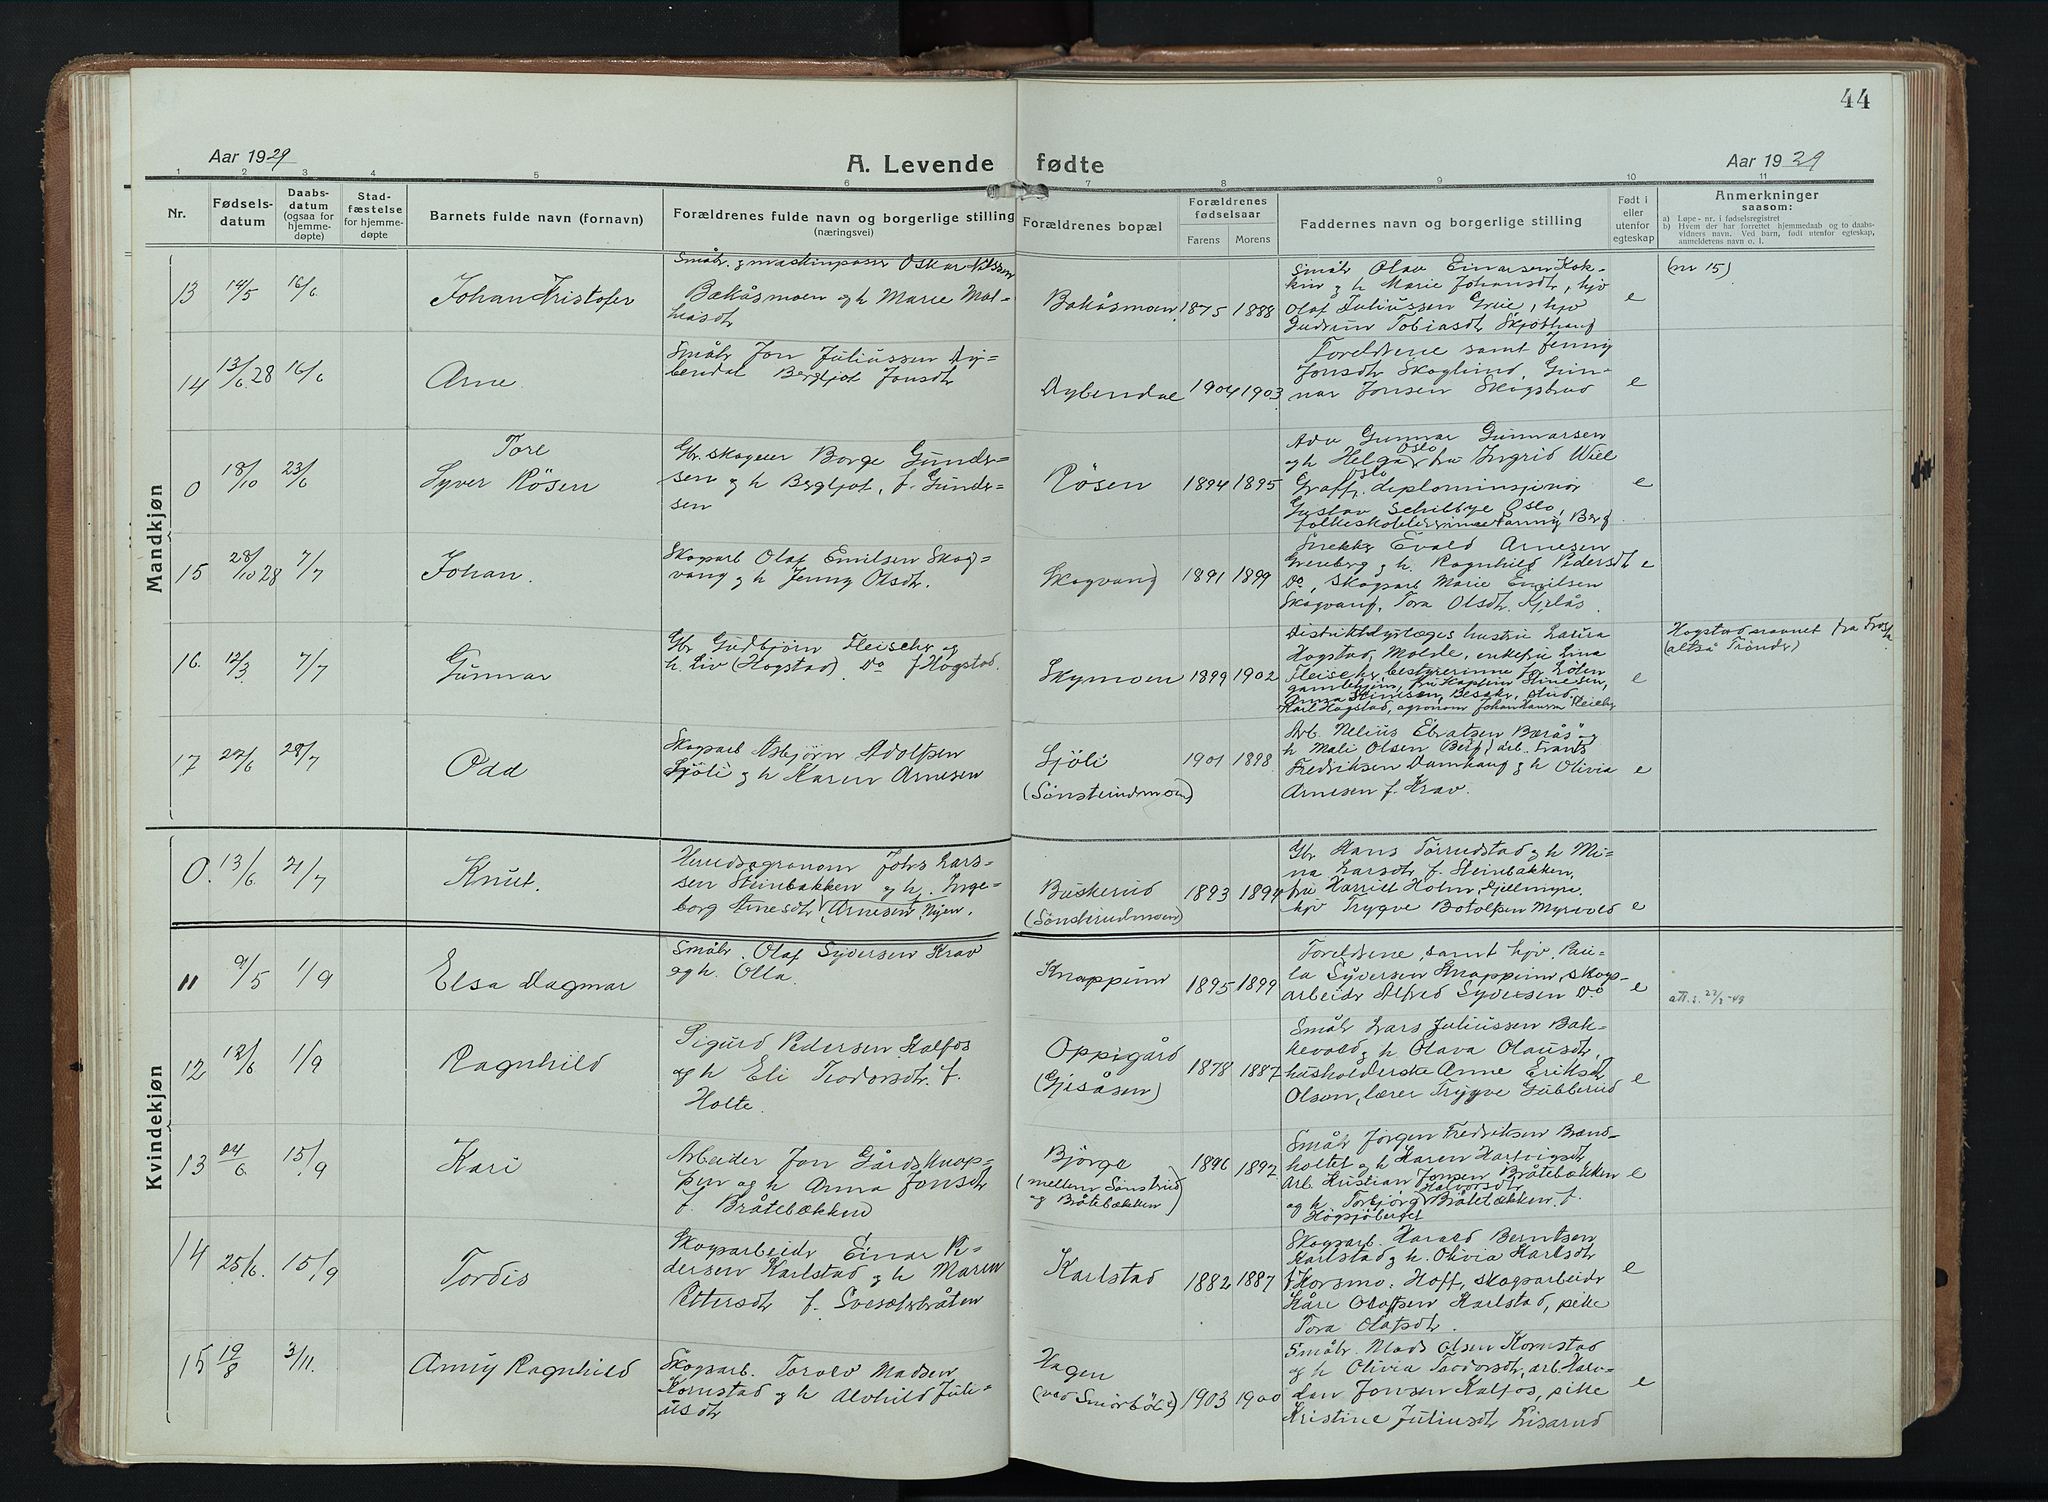 44
Aar 1929
A. Levende fødte
Aar 1929
1 2 3 4 5 6 7 8 9 10 11
Nr.
Fødsels-
datum
Daabs-
datum
(ogsaa for
hjemme-
døpte)
Stad-
fæstelse
for hjemme-
døpte
Barnets fulde navn (fornavn)
Forældrenes fulde navn og borgerlige stilling
(næringsvei)
Forældrenes bopæl
Forældrenes
fødselsaar
Farens Morens
Faddernes navn og borgerlige stilling
Født i
eller
utenfor
egteskap
Anmerkninger
saasom:
a) Løpe-nr. i fødselsregistret
b) Hvem der har forrettet hjemmedaab og to daabs-
vidners navn. Ved barn, født utenfor egteskap,
anmelderens navn o. l.
Mandkjøn
13 14/5 16/6 Johan Kristofer
Småbr. og maskinpasser Oskar Nilsen
Bækåsmoen og h Marie Mat-
hiasdt
Bækåsmoen 1875 1888
Småbr Olav Einarsen Kok-
kin og h Marie Johansdt, hjv
Olaf Juliussen Grue, hjv
Gudrun Tobiasdt Skjøthaug
e
(nr 15)
14 13/6 28 16/6 Arne
Småbr Jon Juliussen Dy-
bendal Bergljot Jonsdt
Dybendal 1904 1903
Foreldrene samt Jenny
Jonsdt Skoglund, Gun-
nar Jonsen Skogstrud
e
0 18/10 23/6
Tore
Syver Røsen
Gbr. skogeier Borge Gunder-
sen og h Bergljot, f. Gunder-
sen
Røsen 1894 1895
Adv Gunnar Gunnarsen
og h Helga Oslo fru Ingrid Wiel
Graff, Oslo diplomingeniør
Gustav Schilbye Oslo,
folkeskolelærerinne Fanny Berg
e
15 28/10 28 7/7 Johan.
Skogsarb Olaf Emilsen Skog-
vang og h Jenny Olsdt.
Skogvang 1891 1899
Snekker Evald Arnesen
Greneberg og h. Ragnhild Pedersdt
Do, skogsarb Marie Emilsen
Skogvang, Tora Olsdt. Kjølås.
e
16. 12/3 7/7 Gunnar
Gbr Gudbjørn Fleischer og
h. Liv (Hogstad) Do f Hogstad.
Skymoen 1899 1902
Distriktslyrlæges hustru Laura
Hogstad, Molde, enkefru Lina
Fleischer, bestyrerinne for Løten
gamlehjem, fru kaptein Stinesen,
Anna Stinesen, Besaker, stud.
Karl Hogstad, agronom Johan Hansen Fleischer
e
Hogstad-navnet fra Frosta
(altså Trønder)
17 22/6 28/7 Odd
Skogsarb Asbjørn Adolfsen
Sjøli og h Karen Arnesen
Sjöli
(Sønsterudmoen)
1901 1898
Arb. Nelius Ebratsen Bærås og
h Mali Olsen (Berg) arb. Frants
Fredriksen Damhaug og h Olivia
Arnesen f. Krav.
e
0. 13/6 21/7 Knut.
Herredsagronom Johs Lars-
sen Steinbakken og h. Inge-
borg Arnesdt, Arnesen, Nyen.
Buskerud
(Sønderudmoen)
1893 1894
Gbr Hans Torrudstad og h Mi-
na Larsdt f. Steinbakken,
fru Harriet Holm, Gjellmyre,
hjv Trygve Botolfsen Myrvold
e
Kvindekjøn
11 9/5 1/9 Elsa Dagmar
Småbr. Olaf Syversen Krav
og h. Olla.
Knappium 1895 1899
Foreldrene, samt hjv. Pau-
la Syversen Knappium, skog-
arbeider Alfred Syversen Do
e
att. s. 22/3-49
12 12/6 1/9 Ragnhild
Sigurd Pedersen Kalfos
og h Eli Teodorsdt. f.
Holte.
Oppigård
(Gjesåsen)
1878 1887
Småbr Lars Juliussen Bak-
kevold og h Olava Olausdt,
husholderske Anne Eriksdt
Olsen, lærer Trygve Gubberud
e
13 24/6 15/9 Kari
Arbeider Jon Gårdsknap-
pen og h Anna Jonsdt
f. Bråtebækken
Björge
(mellem Sönsterud
og Bråtebækken)
1896 1892
Småbr Jørgen Fredriksen Brænd-
holtet og h Karen Hartvigsdt
Arb. Kristian Jonsen Bråtebækken
og h. Torbjørg Halvorsdt Bråtebækken f.
Høgsjøberget
e
14 25/6. 15/9 Tordis
Skogsarbeider Einar Pe-
dersen Karlstad og h Maren
Pettersdt f. Svesæterbråten
Karlstad 1882 1887
Skogsarb. Harald Berntsen
Karlstad og h. Olivia Karlsdt
f. Korsmo. Hoff, skogsarbeider
Kåre Olafsen Karlstad, pike
Tora Olafsdt.
e
15 19/8 3/11. Anny Ragnhild
Skogsarb. Torolv Madsen
Kornstad og h Alvhild Juli-
usdt
Hagen
(ved Smörböl)
1903 1900
Småbr. Mads Olsen Kornstad
og h Olivia Teodorsdt, arb. Halv-
dan Jonsen Kalfos, pike
Kristine Juliusdt Lisarud
e